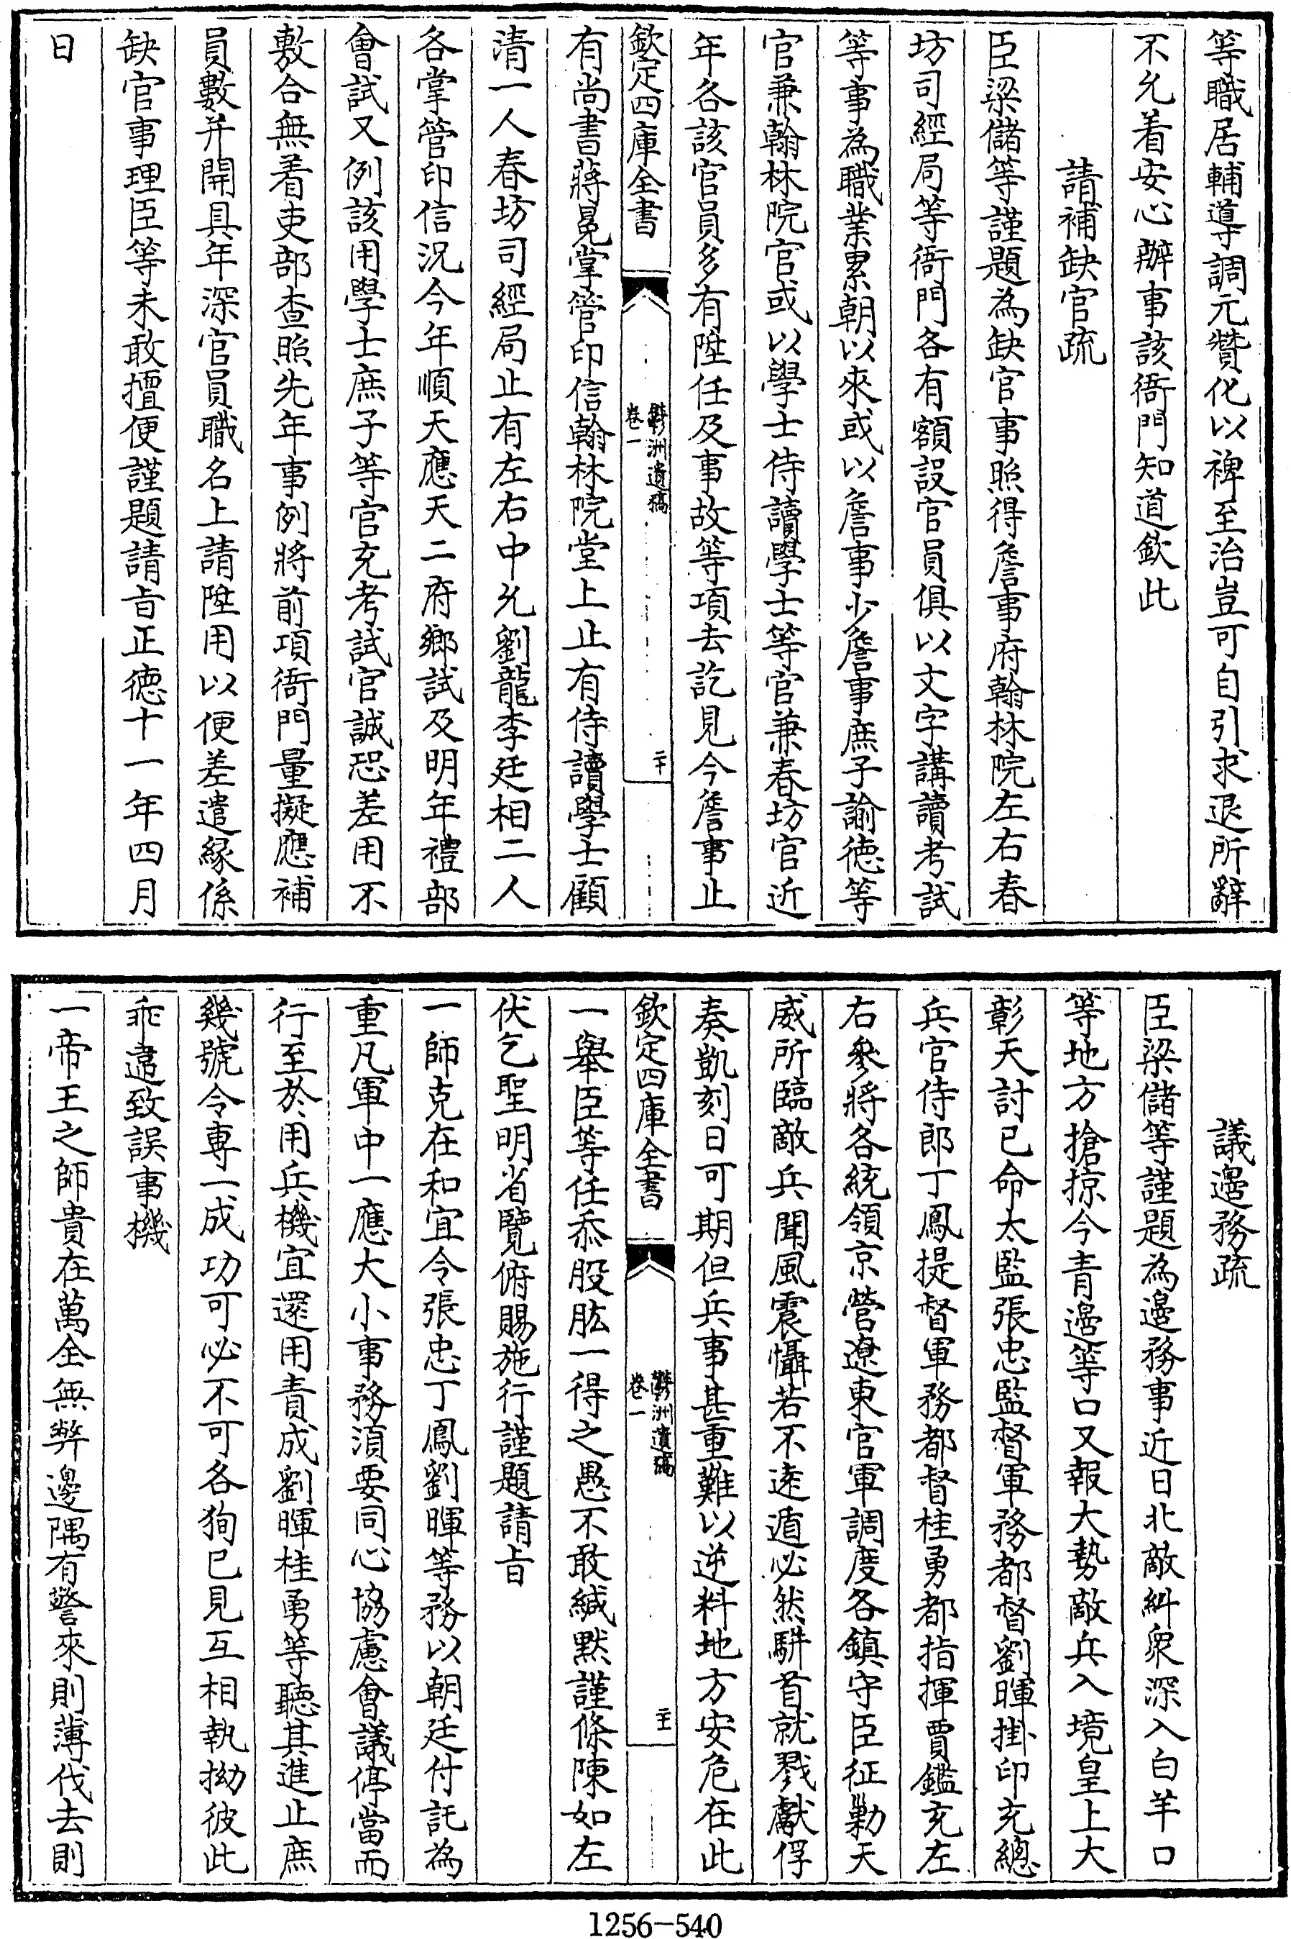 等職居輔導調元贊化以裨至治豈可自引求退所辭
不允着安心辦事該衙門知道欽此
請補缺官疏
臣梁儲等謹題為缺官事照得詹事府翰林院左右春
坊司經局等衙門各有額設官員俱以文字講讀考試
等事為職業累朝以來或以詹事少詹事庶子諭徳等
官兼翰林院官或以學士侍讀學士等官兼春坊官近
年各該官員多有陞任及事故等項去訖見今詹事止
欽定四庫全書
鬱洲遺稿
卷一
二十
有尚書蔣冕掌管印信翰林院堂上止有侍讀學士顧
清一人春坊司經局止有左右中允劉龍李廷相二人
各掌管印信況今年順天應天二府鄉試及明年禮部
會試又例該用學士庶子等官充考試官誠恐差用不
敷合無着吏部查照先年事例將前項衙門量擬應補
員數并開具年深官員職名上請陞用以便差遣緣係
缺官事理臣等未敢擅便謹題請旨正徳十一年四月
日
議邊務疏
臣梁儲等謹題為邊務事近日北敵糾衆深入白羊口
等地方搶掠今青邊等口又報大勢敵兵入境皇上大
彰天討已命太監張忠監督軍務都督劉暉掛印充總
兵官侍郎丁鳳提督軍務都督桂勇都指揮賈鑑充左
右叅將各統領京營遼東官軍調度各鎮守臣征勦天
威所臨敵兵聞風震懾若不逺遁必然駢首就戮獻俘
奏凱刻日可期但兵事甚重難以逆料地方安危在此
欽定四庫全書
鬱洲遺稿
卷一
二十一
一舉臣等任忝股肱一得之愚不敢緘默謹條陳如左
伏乞聖明省覽俯賜施行謹題請旨
一師克在和宜令張忠丁鳳劉暉等務以朝廷付託為
重凡軍中一應大小事務須要同心協慮會議停當而
行至於用兵機宜還用責成劉暉桂勇等聽其進止庶
幾號令専一成功可必不可各狥已見互相執拗彼此
乖違致誤事機
一帝王之師貴在萬全無弊邊隅有警來則薄伐去則
1256-540